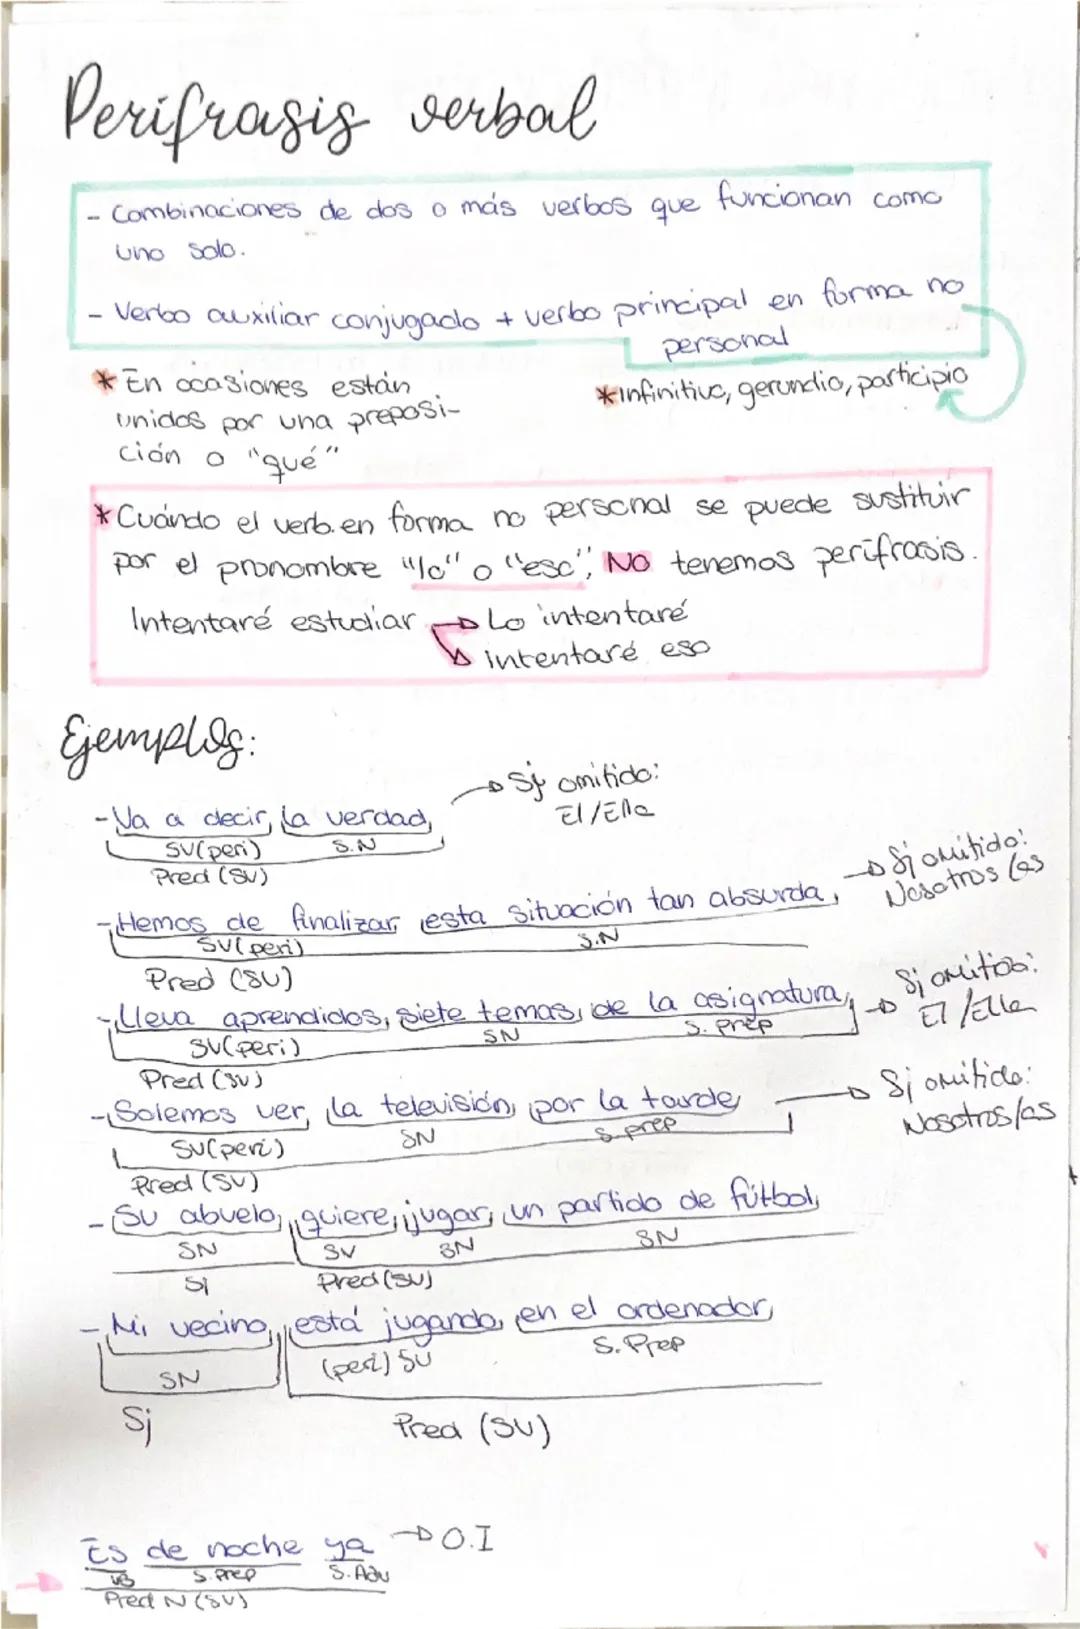 Perífrasis verbal
- Combinaciones de dos o más verbos que funcionan como
uno solo.
- Verbo auxiliar conjugado + verbo principal en forma no
personal
* En ocasiones están
unidos por una preposi-
ción o "qué"
* Infinitivo, gerundio, participio
* Cuándo el verb. en forma no personal se puede sustituir
por el pronombre "lo" o "eso", NO tenemos perífrasis.
Intentaré estudiar → Lo intentaré
intentaré eso
Ejemplos:
→ Sj omitido:
El/Ella
- Va a decir la verdad
SV(peri) S.N
Pred (SV)
→ Sj omitido:
Nosotros/as
- Hemos de finalizar esta situación tan absurda
SV(peri) S.N
Pred (SV)
→ Sj omitido:
El/Ella
- Lleva aprendidos siete temas de la asignatura
SV(peri) SN S. Prep
Pred (SV)
→ Sj omitido:
Nosotros/as
- Solemos ver la televisión por la tarde
SV(peri) SN S.prep
Pred (SV)
- Su abuelo quiere jugar un partido de fútbol
SN SV SN SN
Sj Pred (SV)
- Mi vecino está jugando en el ordenador
SN (peri) SV S. Prep
Sj Pred (SV)
Es de noche ya → O.I
VB S. Prep S. Adv
Pred N (SV)